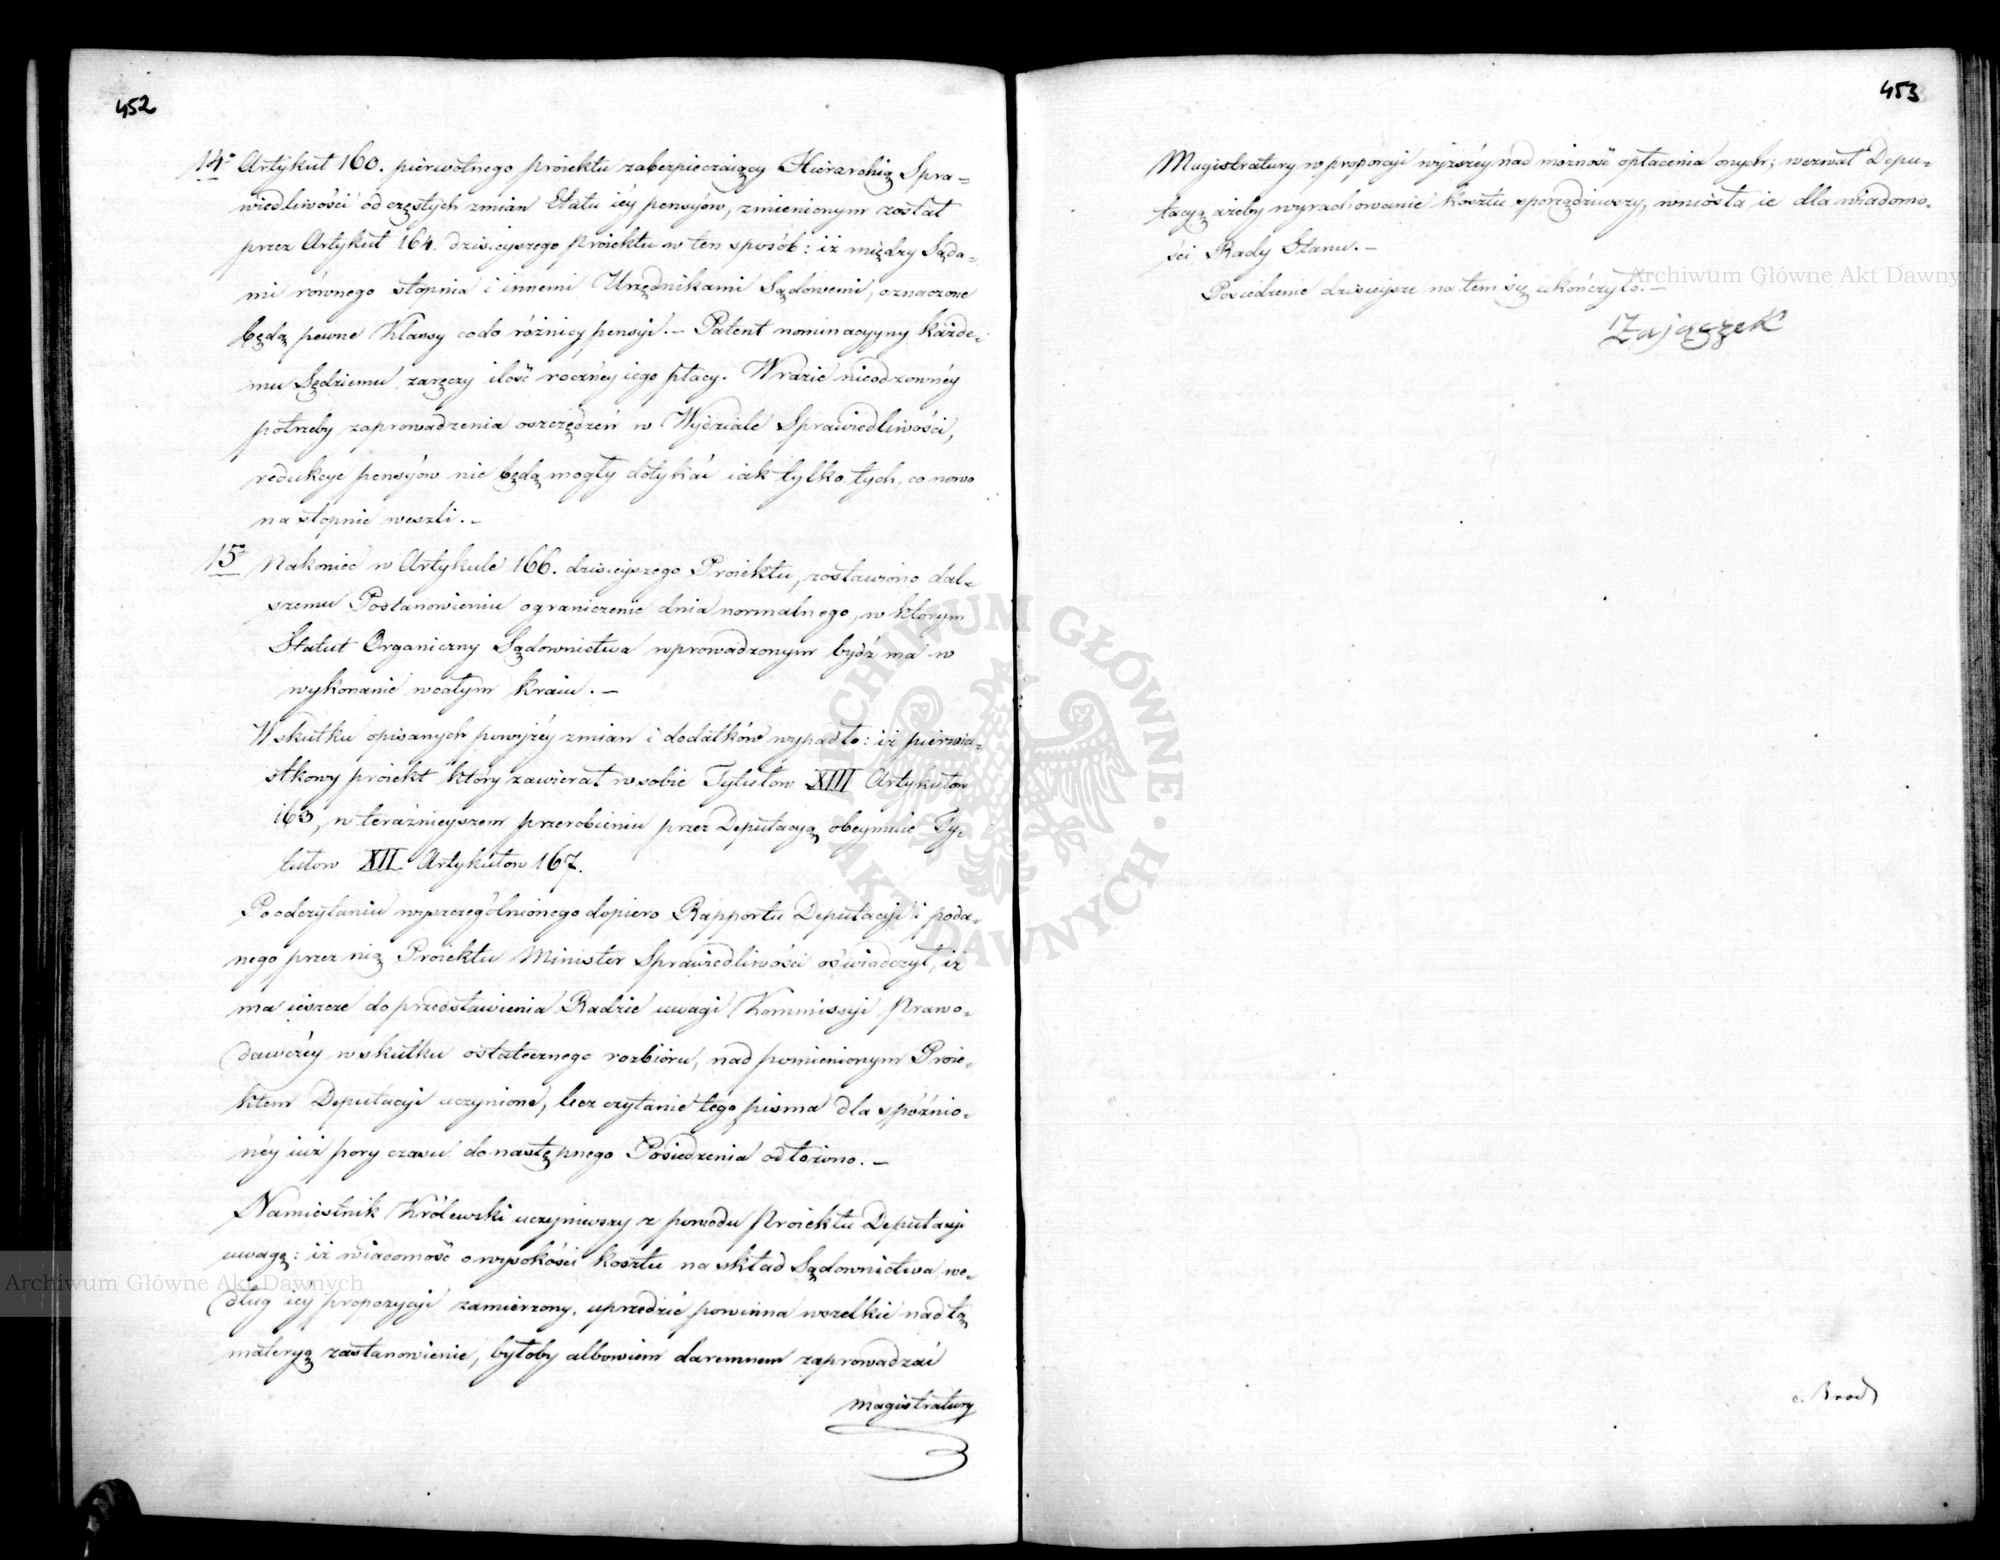 452
14° Artykuł 160. pierwotnego proiektu zabezpieczaiący Hierarchią Spra=
wiedliwości od częstych zmian Etatu iéy pensyów, zmienionym został
przez Artykuł 164. dzisieyszego Proiektu w ten sposób: iż między Sąda=
mi równego stopnia i innemi Urzędnikami Sądowemi, oznaczone
będą pewne Klassy co do różnicy pensyi. — Patent nominacyyny każde=
mu Sędziemu zaręczy ilość rocznéy iego płacy. W razie nieodzownéy
potrzeby zaprowadzenia oszczędzeń w Wydziale Sprawiedliwości,
redukcye pensyów nie będą mogły dotykać iak tylko tych, co nowo
na stopnie weszli. —
15° Nakoniec w Artykule 166. dzisieyszego Proiektu, zostawiono dal=
szemu Postanowieniu ograniczenie dnia normalnego, w którym
Statut Organiczny Sądownictwa wprowadzonym bydź ma w
wykonanie w całym kraiu. —
W skutku opisanych powyżéy zmian i dodatków wypadło: iż pierwia=
stkowy proiekt który zawierał w sobie Tytułów XIII Artykułów
163, w teraźnieyszem przerobieniu przez Deputacyą obeymuie Ty=
tułów XII Artykułów 167.
Po odczytaniu wyszczególnionego dopiero Rapportu Deputacyi i poda=
nego przez nią Proiektu Minister Sprawiedliwości oświadczył, iż
ma ieszcze do przedstawienia Radzie uwagi Kommissyi Prawo=
dawczéy w skutku ostatecznego rozbioru, nad pomienionym Proie=
ktem Deputacyi uczynione, lecz czytanie tego pisma dla spóźnio=
néy iuż pory czasu do następnego Posiedzenia odłożono. —
Namiestnik Królewski uczyniwszy z powodu Proiektu Deputacyi
uwagę: iż wiadomość o wysokości kosztu na skład Sądownictwa we=
dług iéy propozycyi zamierzony, uprzedzić powinna wszelkie nad tą
materyą zastanowienie, byłoby albowiem daremnem zaprowadzać
Magistratury
453
Magistratury w proporcyi wyższéy nad możność opłacenia onych; wezwał Depu=
tacyą ażeby wyrachowanie kosztu sporządziwszy, wniosła ie dla wiadomo=
ści Rady Stanu. —
Posiedzenie dzisieysze na tem się ukończyło. —
Zajączek
Archiwum Główne Akt Dawnych
Archiwum Główne Akt Dawnych
ARCHIWUM GŁÓWNE · AKT DAWNYCH ·